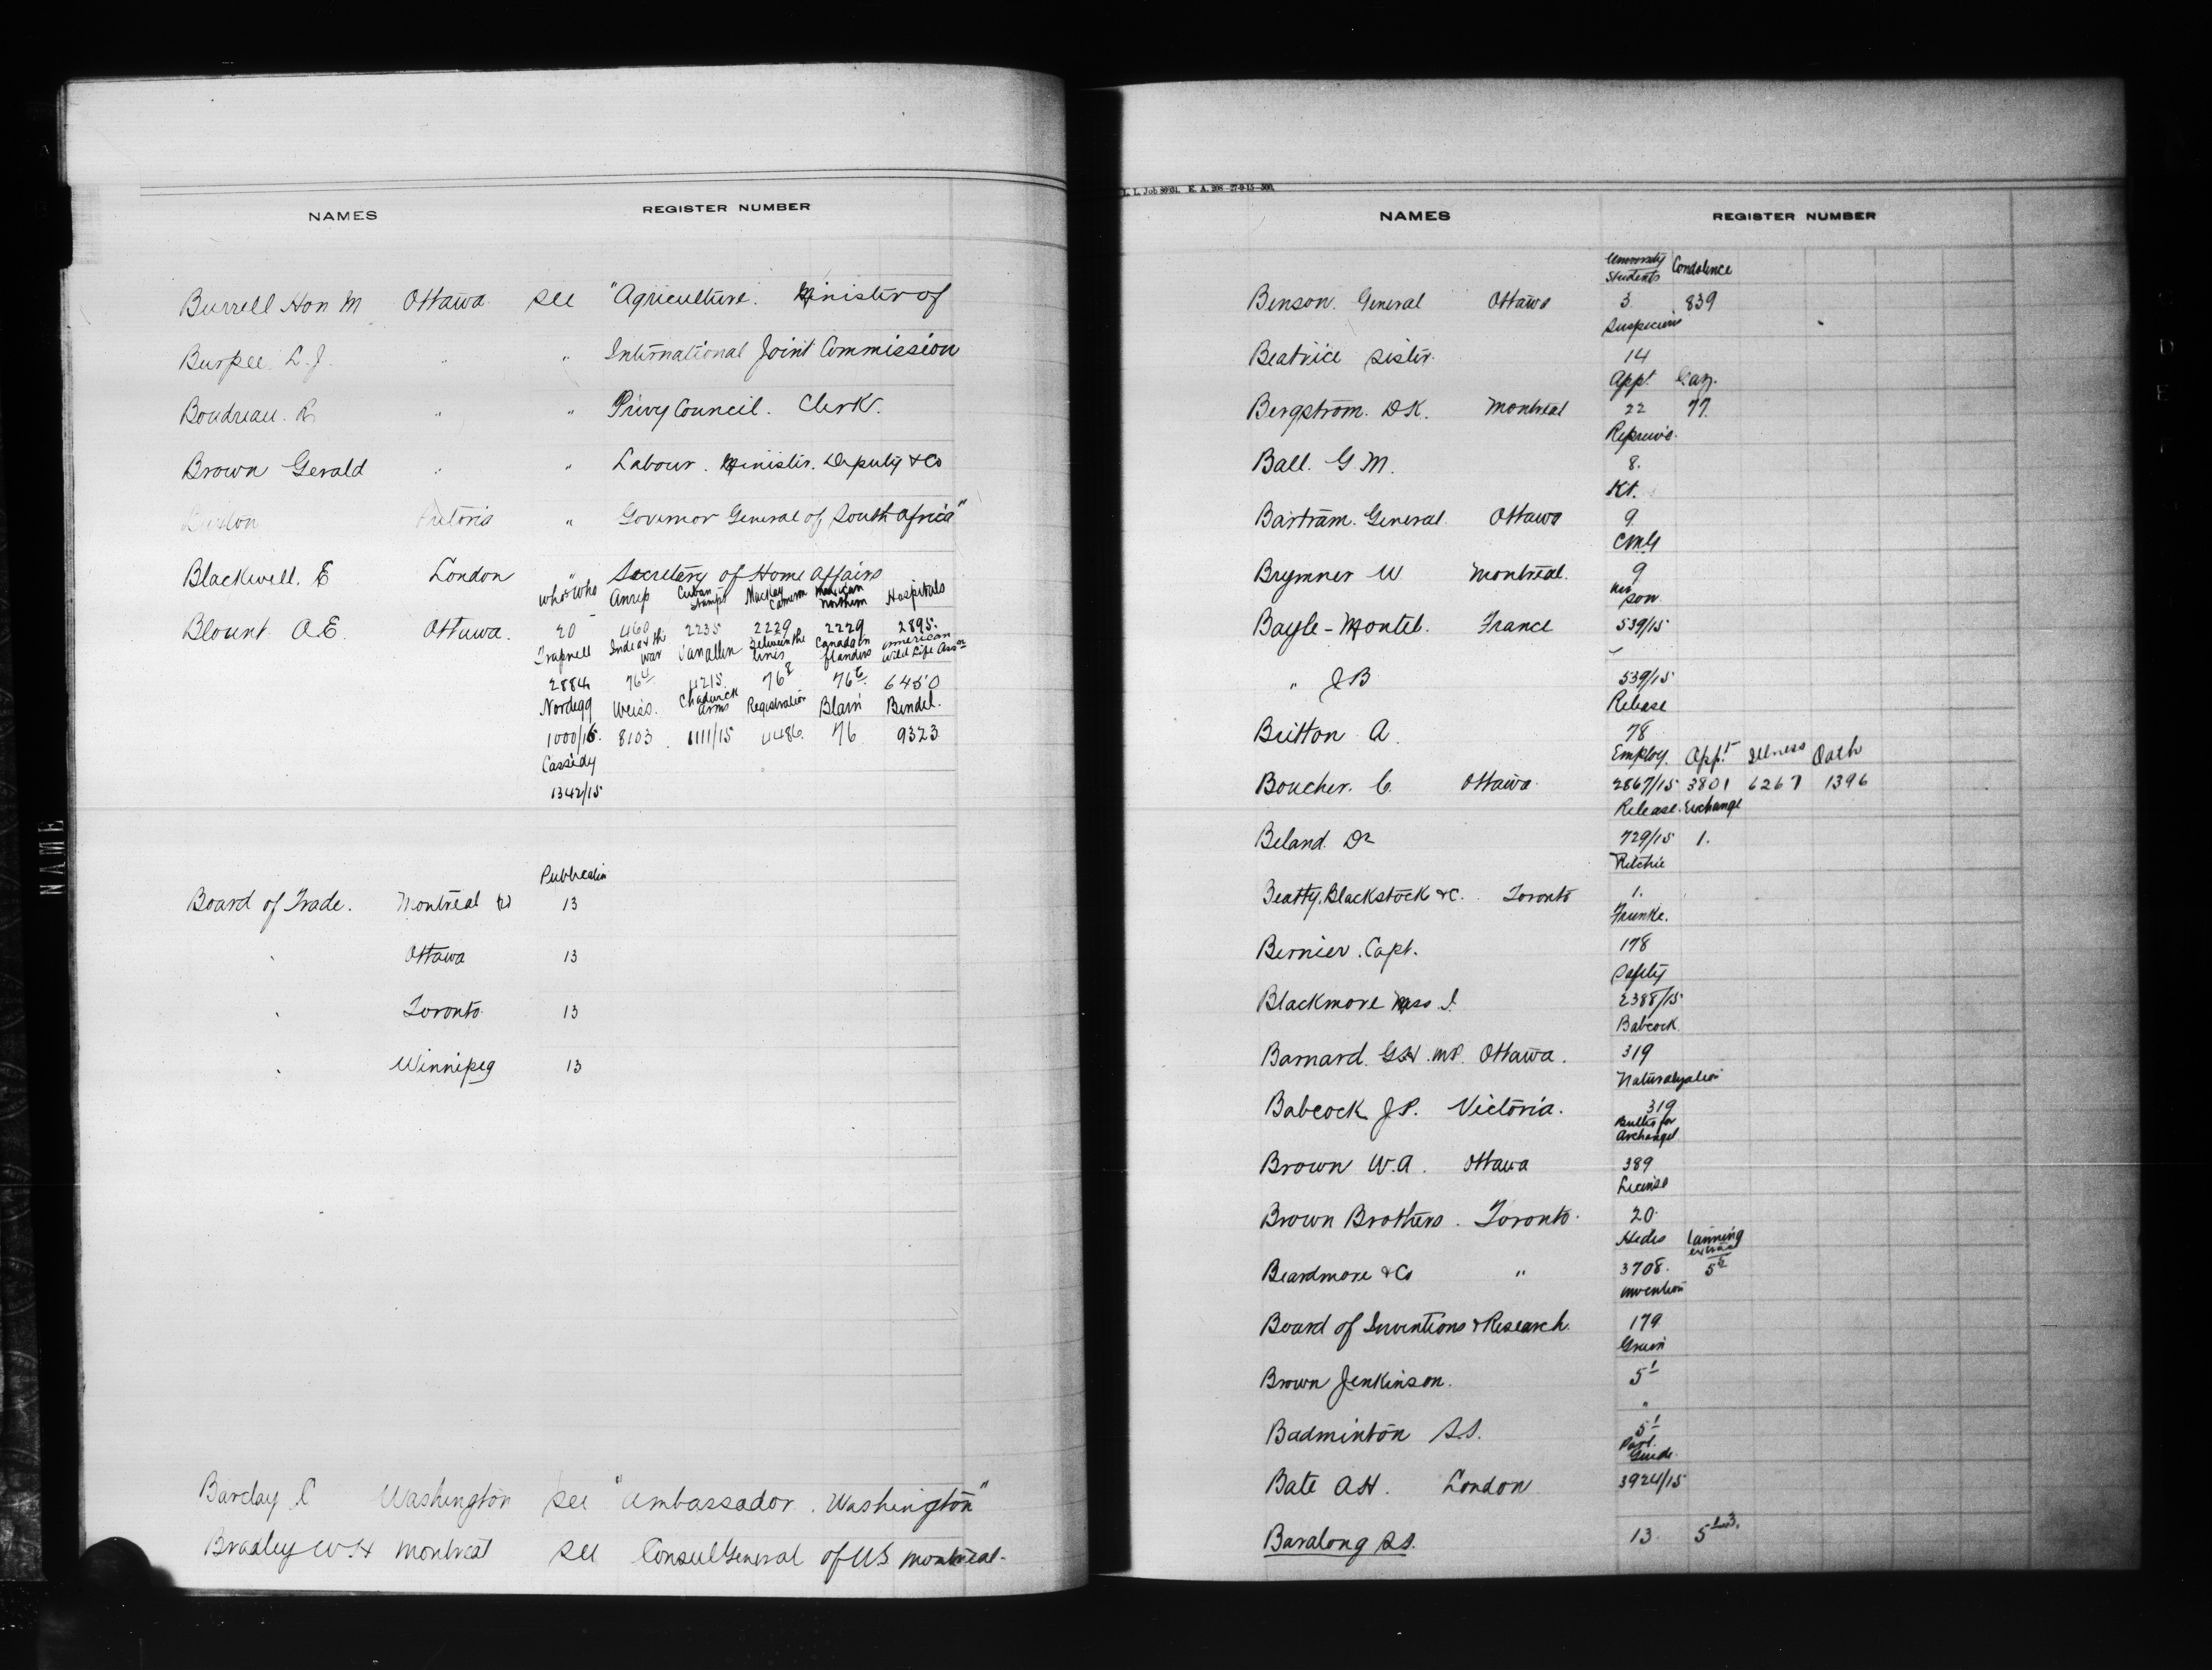 NAMES REGISTER NUMBER
Burrell Hon M Ottawa see "Agriculture. Minister of
Burpee L.J. " " International Joint Commission
Boudreau. R " " Privy Council. Clerk.
Brown Gerald " " Labour. Minister. Deputy &Co
" Governor General of South Africa"
Blackwell. E London " Secretary of Home Affairs
Who's Who Anrep Cuban Stamps Mackay Cameron Mexican Northern Hospitals
Blount A.E. Ottawa. 20 460 2235 2229 2229 2895.
Trapnell India & the war Vanallen Between the lines Canada in Flanders American Wild Life Assn
2884 4215 6450
Nordegg Weiss. Chadwick arms Registration Blain Bindel.
1000/15. 8103 1111/15 76 9323
Cassidy
1342/15
Publication
Board of Trade. Montreal 13
" Ottawa 13
" Toronto. 13
" Winnipeg 13
Barclay C Washington see "Ambassador. Washington"
Bradley W H Montreal see Consul General of U.S. Montreal.
NAME
L. L. Job
NAMES REGISTER NUMBER
University Students Condolence
Benson. General Ottawa 3. 839
Suspicions
Beatrice Sister. 14
Appt.
Bergstrom. D.K. Montreal 22 77.
Ball. G.M. 8.
Kt.
Bartram. General. Ottawa 9
CMG
Brymner W Montreal. 9
his son
Bayle-Montel. France 539/15
"
" J B 539/15
Release
Britton A. 78
Employ. Appt. Illness Oath
Boucher. C. Ottawa. 2867/15 3801 6267 1396
Release. Exchange
Beland. Dr 729/15 1.
Ritchie
Beatty, Blackstock &C. Toronto 1.
Bernier. Capt. 178
Safety
Blackmore Miss I. 2388/15
Babcock.
Barnard. G.H. M.P. Ottawa. 319
Naturalization
Babcock J.P. Victoria. 319
Archangel
Brown W.A. Ottawa 389
License
Brown Brothers. Toronto. 20.
Hides Tanning extract
Beardmore &Co " 3708.
Invention
Board of Inventions & Research. 179
Grain
Brown Jenkinson. 5
"
Badminton S.S. 5
Parl. Guide.
Bate A.H. London 3924/15
Baralong S.S. 13